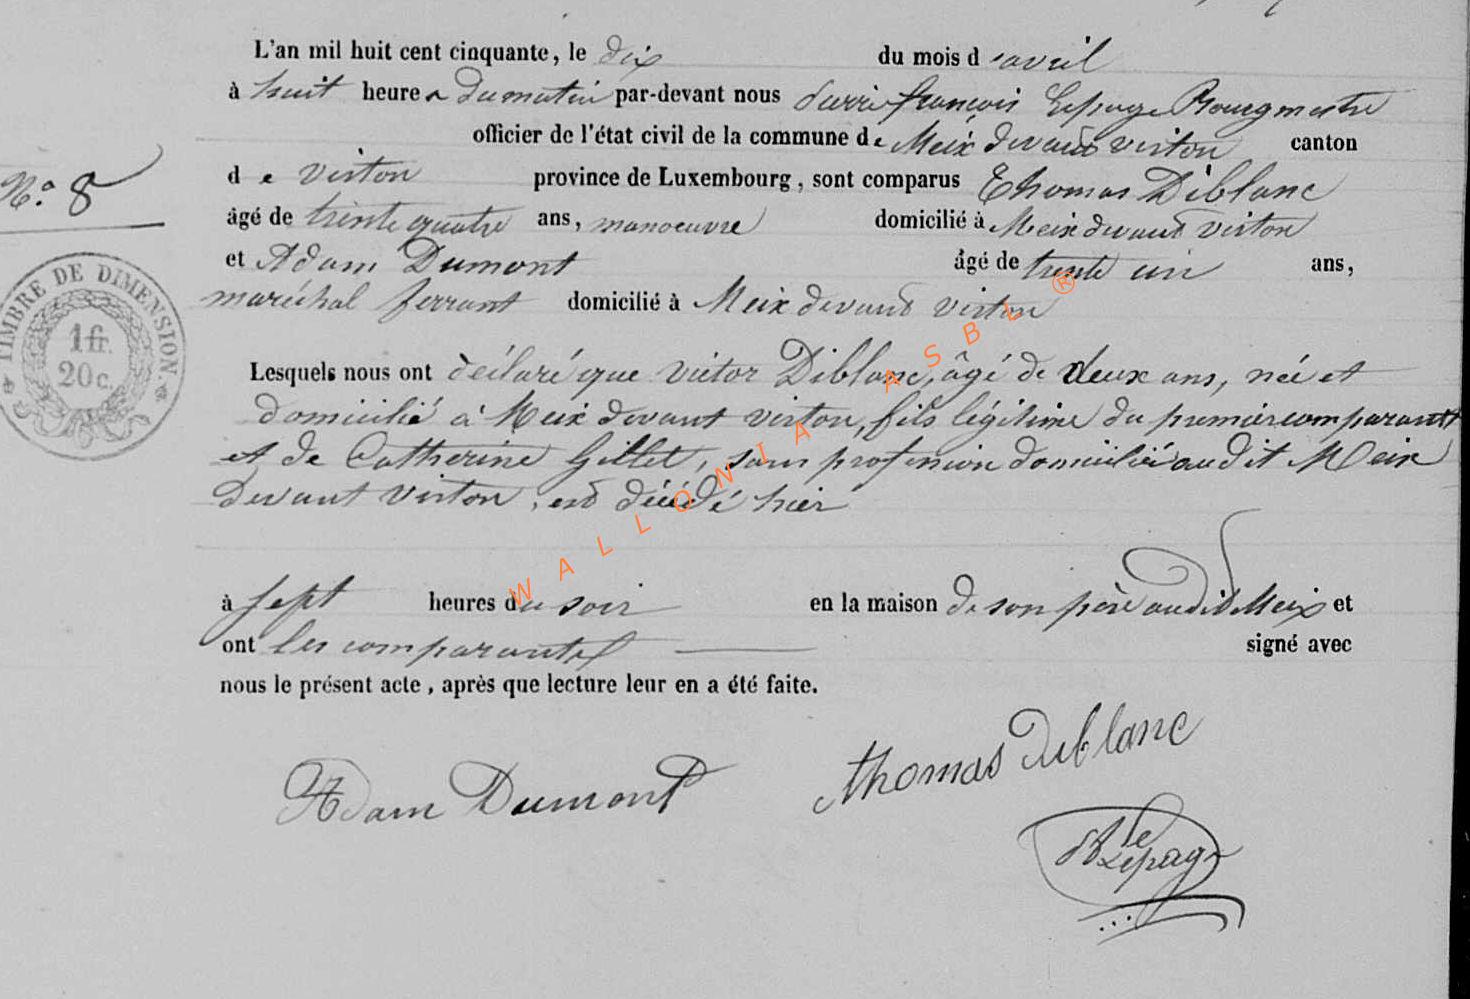 L'an mil huit cent cinquante, le dix du mois d'avril
à huit heures du matin par-devant nous Pierre françois Lepage Bourgmestre
officier de l'état civil de la commune de Meix devant virton canton
N.° 8
de virton province de Luxembourg, sont comparus Thomas Diblanc
âgé de trente quatre ans, manoeuvre domicilié à Meix devant virton
et Adam Dumont âgé de trente un ans,
maréchal ferrant domicilié à Meix devant virton
TIMBRE DE DIMENSION
1 fr.
20 c.
Lesquels nous ont déclaré que victor Diblanc, âgé de deux ans, né et
domicilié à Meix devant virton, fils légitime du premier comparant
et de Catherine Gillet, sans profession domiciliée audit Meix
devant virton, est décédé hier
à sept heures du soir en la maison de son père audit Meix et
ont les comparants signé avec
nous le présent acte, après que lecture leur en a été faite.
Adam Dumont thomas diblanc
Lepage
WALLONIA ASBL ®